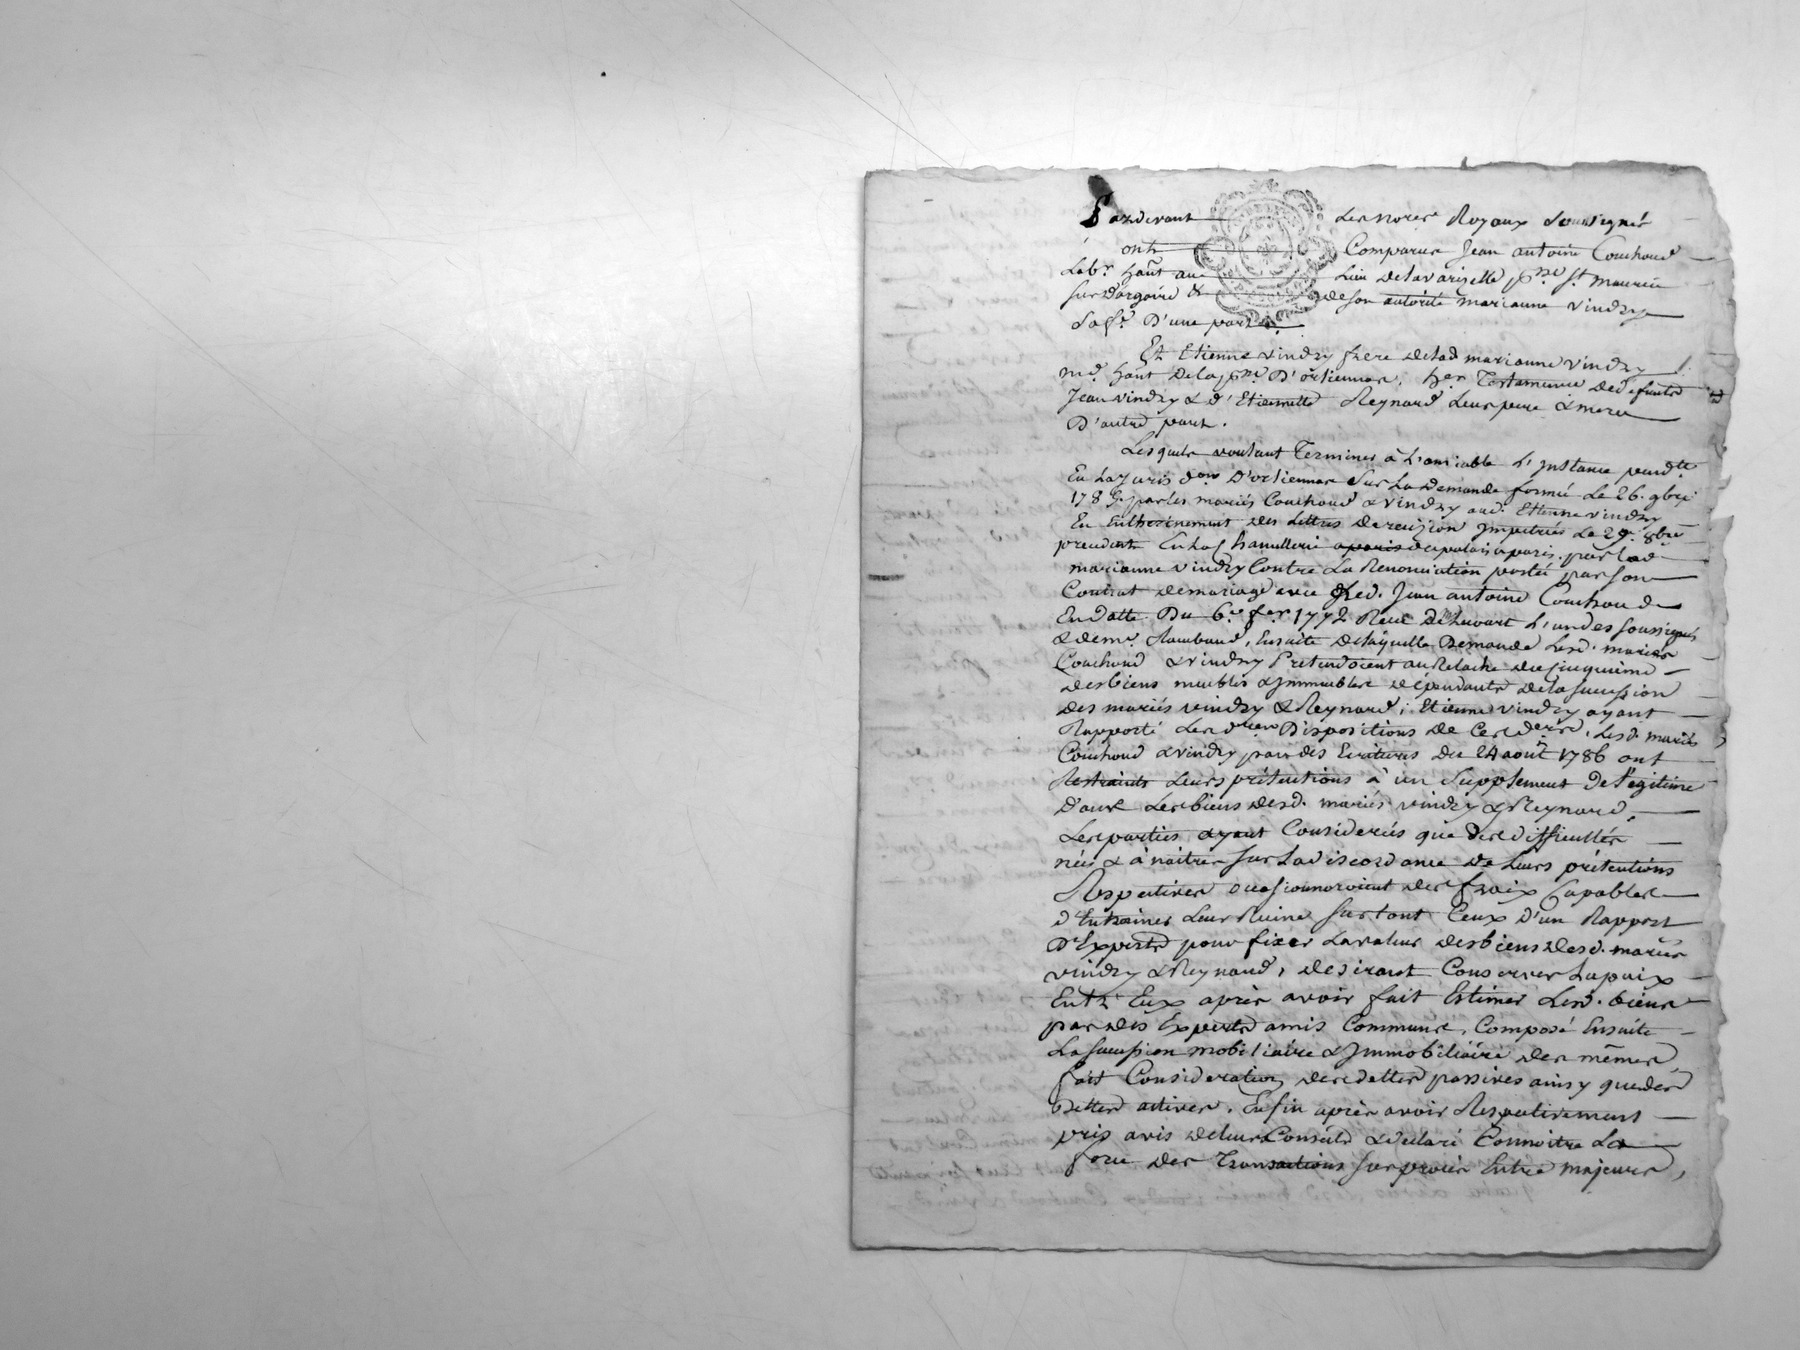 Pardevant Les nores Royaux Soussignés
ont Comparus Jean antoine Couchoud
Labr. hant. au Lieu delavarizelle psse. st. maurice
sur dargoire & de son autorité marianne vindry
Sa fe. D'une part
Et Etienne vindry frere delad marianne vindry
md. hant. Delapsse. D'orliennas, her. Testamenre. Ded.efunts
Jean vindry & d'Etiennette Reynard Leurs pere & mere
D'autre part.
Lesquels voulant Terminer à L'amiable L'Instance pendte.
En La Juris don. D'orliennas Sur La Demande formée Le 26. 9bre.
178 par les mariés Couchoud & vindry aud. Etienne vindry
En Entherinement des Lettres De recizion Impetrées Le 29. 8bre
precedent En La Chanullerie du palais a paris par Lad.
marianne vindry Contre La Renonciation portée par son
Contrat demariage avec Led. Jean antoine Couchoud
En datte Du 6e. fer. 1772 Recu L'un des soussignés
& de me. Rambaud, Ensuite delaquelle Demande Lesd. mariés
Couchoud & vindry Pretendoient au Relache du Cinquieme
des biens meubles & Immeubles dépendants dela succession
des mariés vindry & Reynard; Etienne vindry ayant
Rapporté Les dres Dispositions de Ces ders, Lesd. mariés
Couchoud & vindry par des Ecritures du 24 aout 1786 ont
Restraints Leurs prétentions à un Supplement De Legitime
Dans Les biens desd. mariés vindry & Reynard.
Les parties ayant Considerés que des difficultés
née & à naitre sur La discordance de Leurs prétentions
Respectives occasionneroient des fraix Capables
d'Entrainer Leur Ruine surtout Ceux d'un Rapport
D'Experts pour fixer La valeur des biens desd. mariés
vindry & Reynard, desirant Conserver La paix
Entr' Eux après avoir fait Estimer Lesd. biens
par des Experts amis Communs, Composé Ensuite
La succession mobiliaire & Immobiliaire des mêmes,
fait Consideration des dettes passives ainsy que des
Dettes actives. Enfin après avoir Respectivement
pris avis de leurs Conseils & declaré Connoitre La
force des Transactions sur procès Entre majeurs,